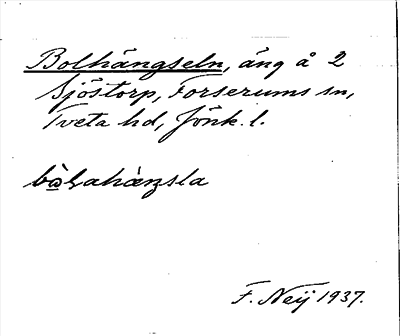 Bolhängseln, äng å 2
Sjöstorp, Forserums sn,
Tveta hd, Jönk. l.
F. Neij 1937.